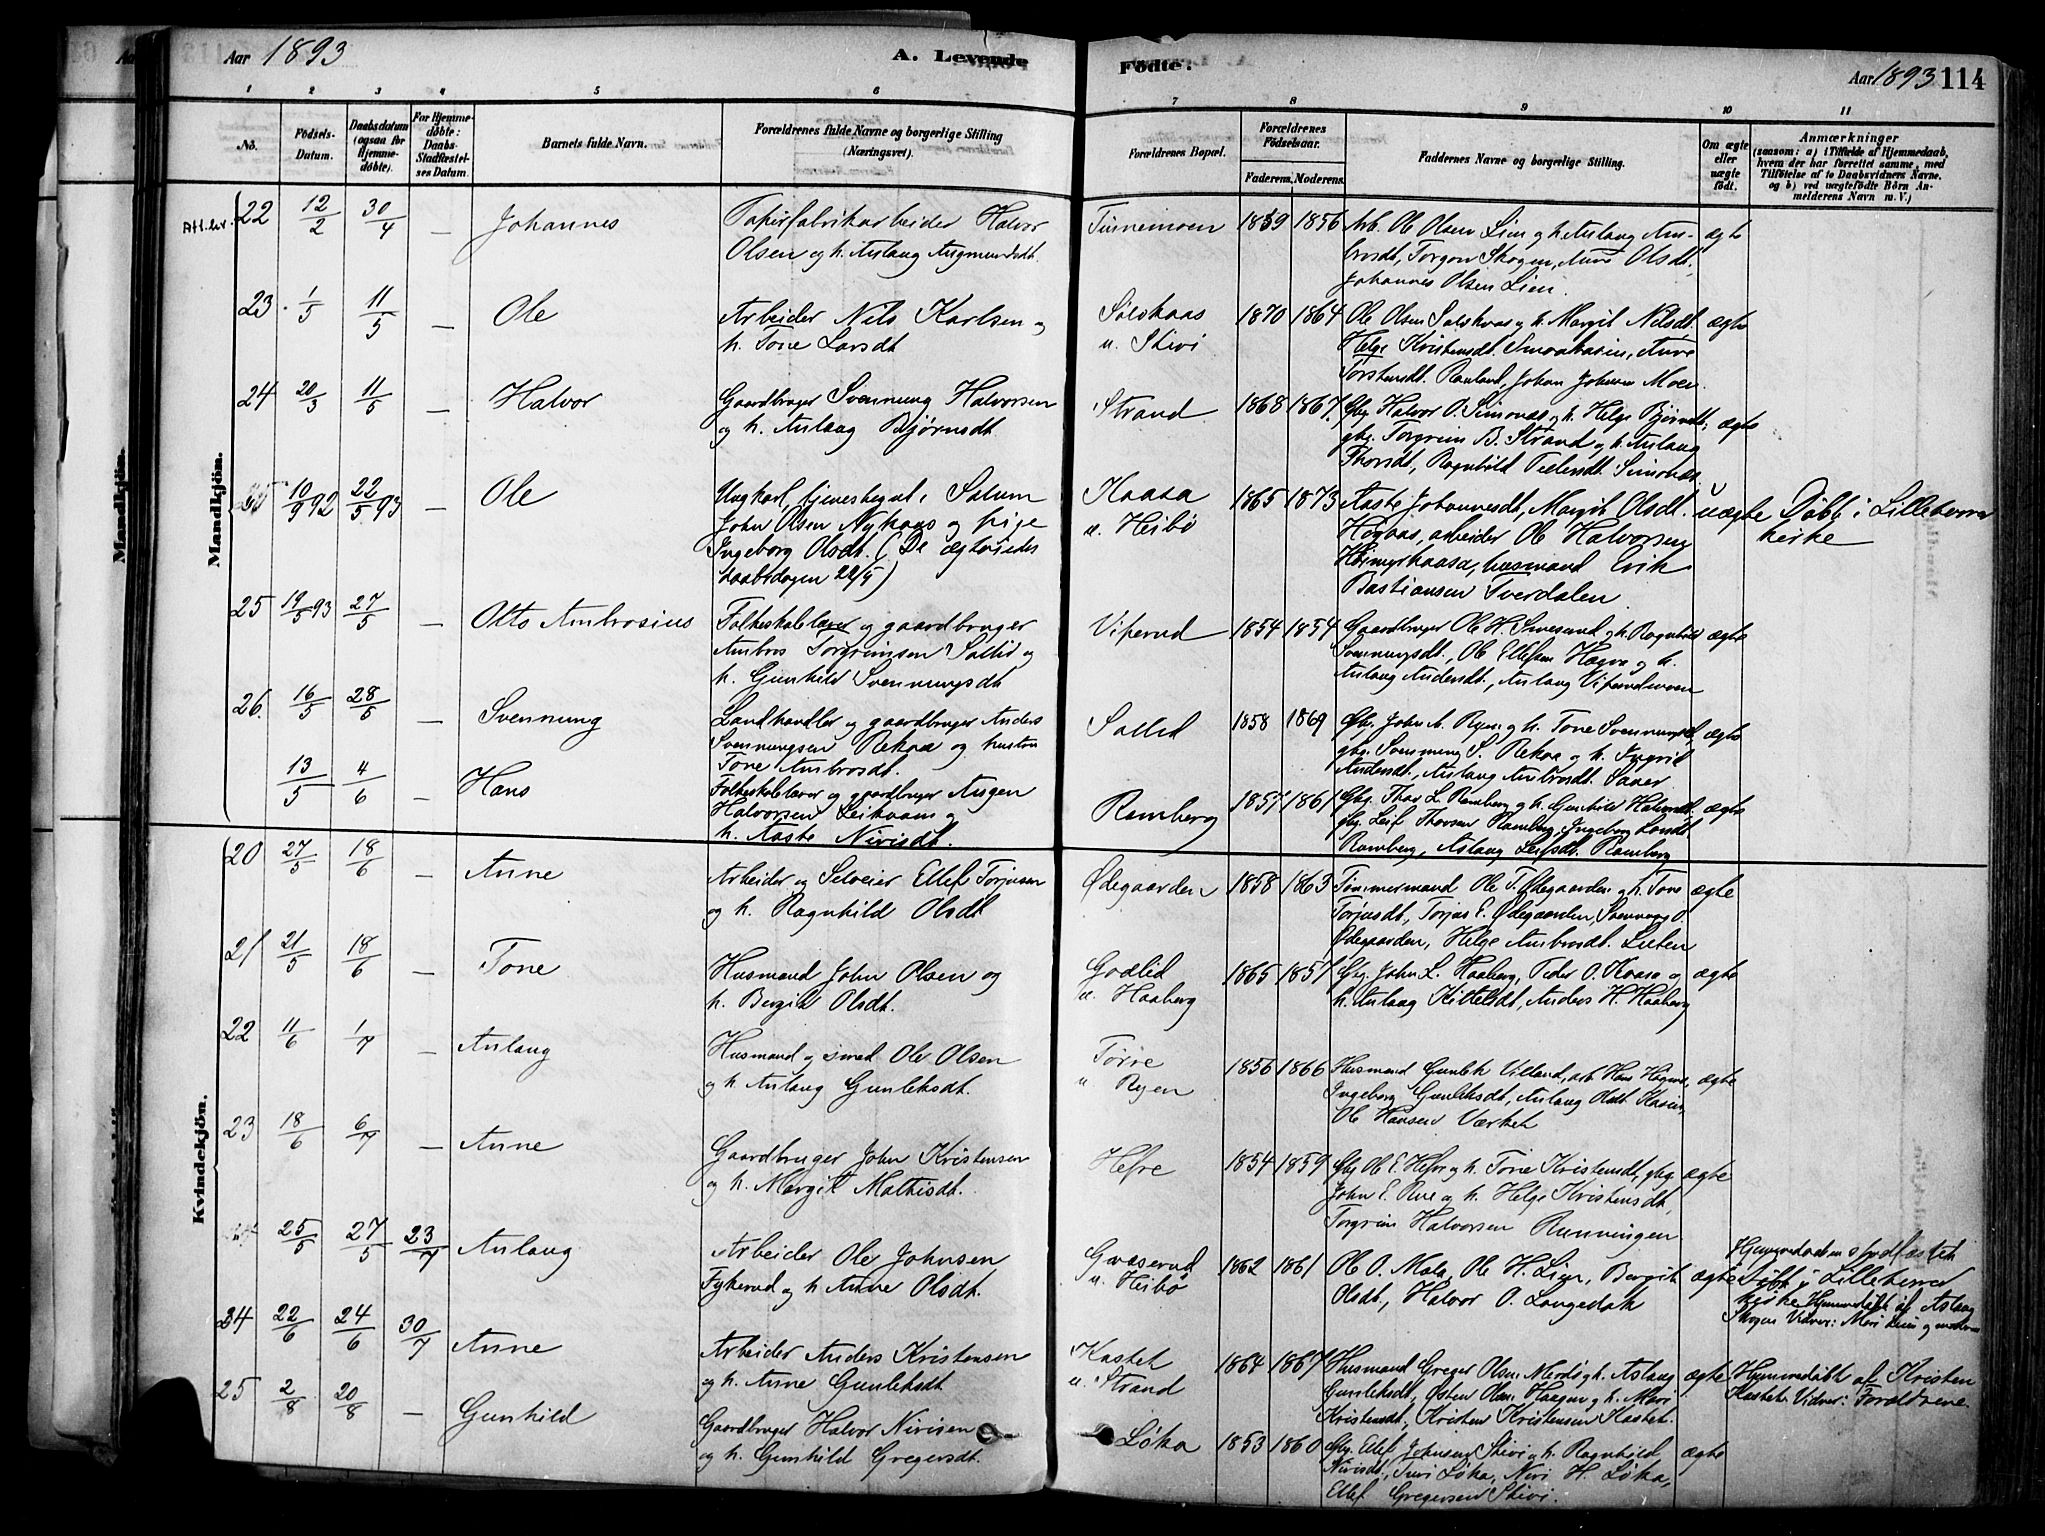 Aar 1893
A. Levende
Födte.
Aar 1893 114
1 2 3 4 5 6 7 8 9 10 11
No.
Födsels-Datum.
Daabsdatum (ogsaa for Hjemmedöbte).
For Hjemmedöbte: Daabs-Stadfæstelses Datum.
Barnets fulde Navn.
Forældrenes fulde Navne og borgerlige Stilling (Næringsvei).
Forældrenes Bopæl.
Forældrenes Födselsaar.
Faderens. Moderens.
Faddernes Navne og borgerlige Stilling.
Om ægte eller uægte född.
Anmærkninger
(saasom: a) i Tilfælde af Hjemmedaab,
hvem der har forrettet samme, med
Tilföielse af to Daabsvidners Navne.
og b) ved uægtefödte Börn An-
melderens Navn m. V.)
Mandkjön.
Att. lev.
22 12/2 30/4 – Johannes
Papirfabrikarbeider Halvor
Olsen og h. Aslaug Augmundsdt.
Tinnemoen 1859 1856
Arb. Ole Olsen Lien og h. Aslaug Am-
brosdt, Torgon Skogen, Anne Olsdt,
Johannes Olsen Lien.
ægte
23 1/5 11/5 – Ole
Arbeider Nils Karlsen og
h. Tone Larsdt
Solskaas
u. Skivi
1870 1864
Ole Olsen Solskaas og h. Margit Nilsdt.
Helge Kristensdt. Anne
Torstensdt. Rauland, Johan Johnsen Moen.
ægte
24 20/3 11/5 – Halvor
Gaardbruger Svennung Halvorsen
og h. Aslaug Bjørnsdt.
Strand 1868 1867.
Gbg. Halvor O. Simonaas og h. Helge Bjørnsdt;
gbg. Torgrim B. Strand og h. Aslaug
Thorsdt, Ragnhild Pedersdt. Simonaas.
ægte
10/9 92 22/5 93 – Ole
Ungkarl, tjenestegut i Solum
John Olsen Nykaas og pige
Ingeborg Olsdt. (De ægteviedes
daabsdagen 22/5)
Kaasa
u. Heibø
1865 1873
Aaste Johannesdt, Margit Olsdt.
Høgaas, arbeider Ole Halvorsen
Heimyrkaasa, husmand Erik
Bastiansen Sverdalen.
uægte
Døbt i Lilleherre
kirke
25 19/5 93 27/5 – Otto Ambrosius
Folkeskolelærer og gaardbruger
Ambros Torgrimsen Sollid og
h. Gunhild Svennungsdt
Viperud 1854 1854
Gaardbruger Ole H. og h. Ragnhild
Svennungsdt., Ole Ellefsen Hægna og h.
Aslaug Andersdt., Aslaug Viperudmoen
ægte
26. 16/5 28/5 – Svennung
Landhandler og gaardbruger Anders
Svennungsen Rekaa og hustru
Tone Ambrosdt.
Sollid 1858 1869
Gbg. John A. Ryen og h. Tone Svennungsdt,
gbg. Svennung S. Rekaa og h. Ingrid
Andersdt., Aslaug Ambrosdt. Saaer
ægte
13/5 4/6 – Hans
Folkeskolelærer og gaardbruger Augen
Halvorsen Leikaas og
h. Aaste Nirisdt.
Ramberg 1857 1861
Gbg. Thor L. Ramberg og h. Gunhild Halvorsdt.
gbg. Leif Thorsen Ramberg, Ingeborg
Ramberg, Aslaug Leifsdt. Ramberg
ægte
Kvindekjön.
20 27/5 18/6 – Anne
Arbeider og Selveier Ellef Torjusen
og h. Ragnhild Olsdt
Ødegaarden 1858 1863
Tømmermand Ole T. Ødegaarden og h. Tone
Torjusdt, Torjus E. Ødegaarden, Svennung O.
Ødegaarden, Helge Ambrosdt. Lien
ægte
21 21/5 18/6 – Tone
Husmand John Olsen og
h. Bergit Olsdt.
Godlid
u. Haaberg
1865 1857
Gbg. John L. Haaberg, Peder O. Kaasa og
h. Aslaug Kittelsdt, Anders H. Haaberg
ægte
22 11/6 1/7 – Aslaug
Husmand og smed Ole Olsen
og h. Aslaug Gunleksdt.
Tørre
u. Ryen
1856 1866
Husmand Gunlek Villand, arb. Hans Hægna,
Ingeborg Gunleksdt, Aslaug Olsdt
Ole Hansen Værket
ægte
23 18/6 6/7 – Anne
Gaardbruger John Kristensen
og h. Margit Mathisdt.
Hefre 1854 1859
Gbg Ole E. Hefre og h. Tone Kristensdt, gbg.
John E. Rue og h. Helge Kristensdt,
Torgrim Halvorsen Runningen
ægte
25/5 27/5 23/7 Aslaug
Arbeider Ole Johnsen
Fykerud og h Anne Olsdt.
Gvaserud
u. Heibø
1862 1861
Ole O. Mata, Ole H. Lien, Bergit
Olsdt., Halvor O. Langedak
ægte
Hjemmedaaben stadfæstet
Døbt i Lilleherred
kirke Hjemmedøbt af Aslaug
Skogen Vidner: Mari Lien og moderen
24 22/6 24/6 30/7 Anne
Arbeider Anders Kristensen
og h. Anne Gunleksdt.
Kastet
u. Strand
1864 1867
Husmand Greger Olsen Merdø og h. Aslaug
Gunleksdt, Østen Olsen Haagen og h. Mari
Kristensdt, Kristen Kristensen Kastet.
ægte
Hjemmedøbt af Kristen
Kastet. Vidner: Forældrene.
25 2/8 20/8 – Gunhild
Gaardbruger Halvor Nirisen
og h. Gunhild Gregersdt.
Løka 1853 1860
Gbg. Ellef Johnsen Skivi og h. Ragnhild
Nirisdt, Turi Løka, Niri H. Løka,
Ellef Gregersen Skivi.
ægte